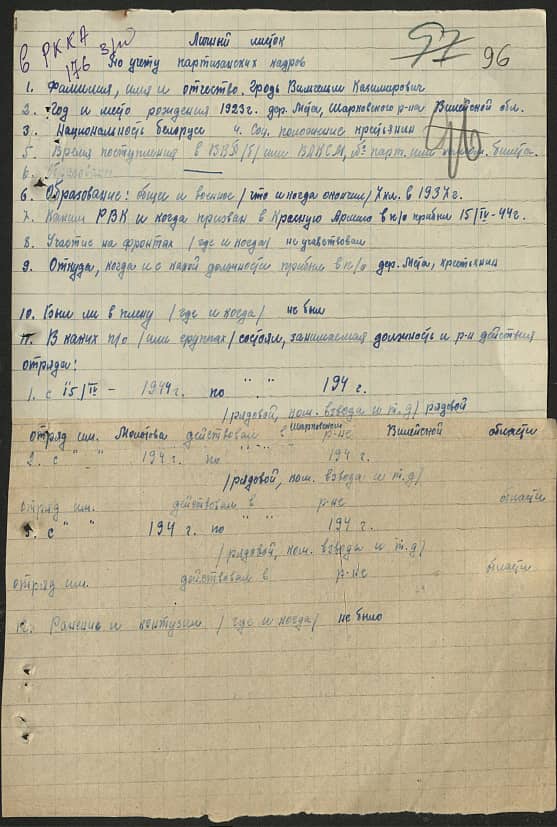 в РККА
176 з/п
97 96
Личный листок
по учету партизанских кадров
1. Фамилия, имя и отчество. Гродь Вильгельм Казимирович
2. Год и место рождения 1923 г. дер. Мета, Шарковского р-на Вилейской обл.
3. Национальность беларус 4. Соц. положение крестьянин
5. Время поступления в ВКП/б/ или ВЛКСМ, № парт. или комсом. билета.
6.
6. Образование: общее и военное /что и когда окончил/ 7 кл. в 1937 г.
7. Каким РВК и когда призван в Красную Армию в п/о прибыл 15/IV-44 г.
8. Участие на фронтах /где и когда/ не участвовал
9. Откуда, когда и с какой должности прибыл в п/о дер. Мета, крестьянин
10. Был ли в плену /где и когда/ не был
11. В каких п/о /или группах/ состоял, занимаемая должность и р-н действия
отряда:
1. с "15/IV - 1944 г. по " " 194 г.
/рядовой, ком. взвода и т.д/ рядовой
отряд им. Молотова действовал в Шарковском р-не Вилейской области
2. с " " 194 г. по " " 194 г.
/рядовой, ком. взвода и т.д/
отряд им. действовал в р-не области
3. с " " 194 г. по " " 194 г.
/рядовой, ком. взвода и т.д/
отряд им. действовал в р-не области
12. Ранение и контузии /где и когда/ не было